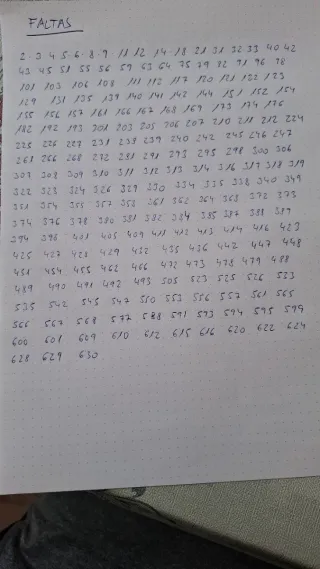 FALTAS
2 · 3 4 5 · 6 · 8 · 9 11 12 14 · 18 21 31 32 33 40 42
43 45 51 55 56 59 63 64 75 79 82 91 96 98
101 103 106 108 111 112 117 120 121 122 123
129 131 135 139 140 141 142 144 151 152 154
155 156 157 161 166 167 168 169 173 174 176
182 192 193 201 203 205 206 207 210 211 212 224
225 226 227 231 238 239 240 242 245 246 247
261 266 268 272 281 291 293 295 298 300 306
307 308 309 310 311 312 313 314 316 317 318 319
322 323 324 326 329 330 334 335 338 340 349
351 354 355 357 358 361 362 364 368 372 373
374 376 378 380 381 382 384 385 387 388 389
394 398 401 405 409 411 412 413 414 416 423
425 427 428 429 432 435 436 442 447 448
451 454 455 462 466 472 473 478 479 488
489 490 491 492 493 505 523 525 526 533
535 542 545 547 550 553 556 557 561 565
566 567 568 577 588 591 593 594 595 599
600 601 609 610 612 615 616 620 622 624
628 629 630